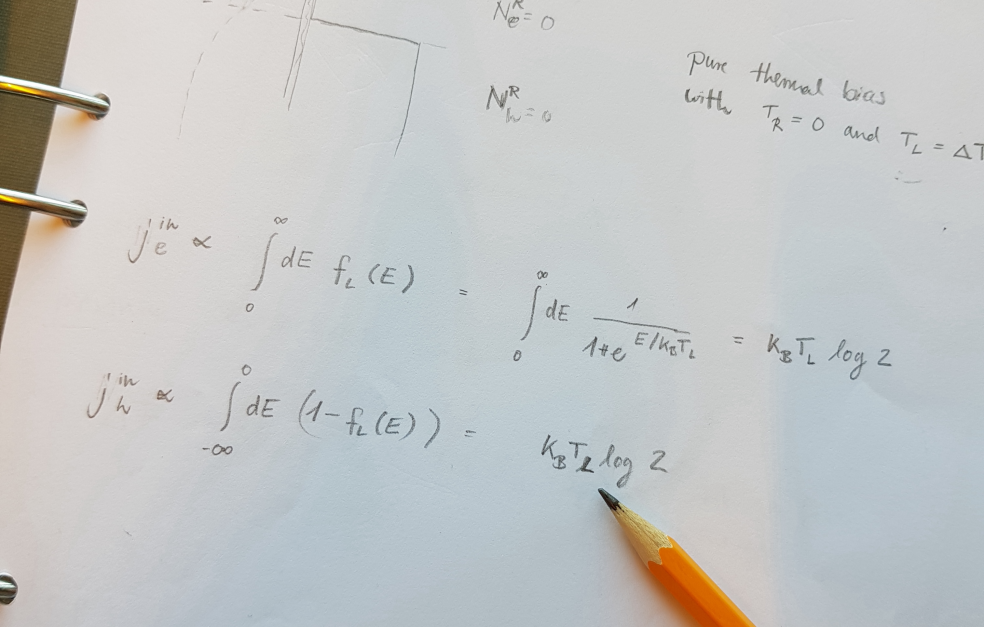 N_e^R = 0
N_h^R = 0
Pure thermal bias
with T_R = 0 and T_L = ΔT
j_e^in ∝ ∫_0^∞ dE f_L (E) = ∫_0^∞ dE 1/(1+e^(E/K_BT_L)) = K_B T_L log 2
j_h^in ∝ ∫_-∞^0 dE (1-f_L(E)) = K_B T_L log 2